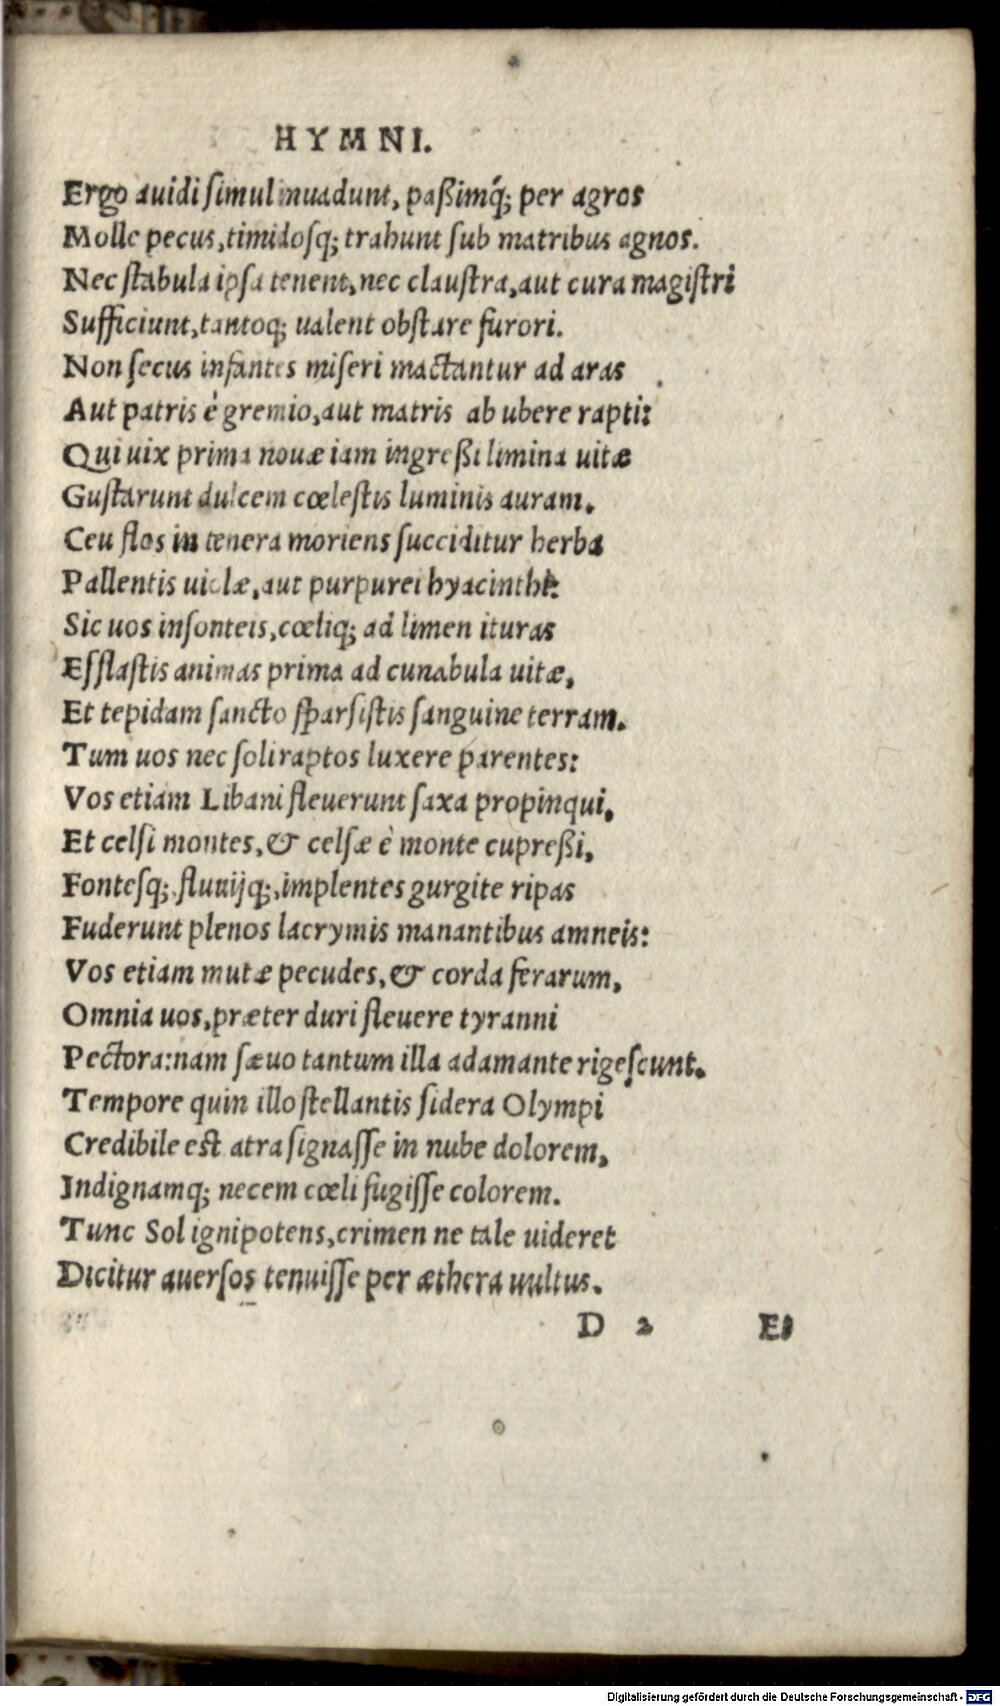 HYMNI.
Ergo auidi simul inuadunt, paßimq́; per agros
Molle pecus, timidosq; trahunt sub matribus agnos.
Nec stabula ipsa tenent, nec claustra, aut cura magistri
Sufficiunt, tantoq; ualent obstare furori.
Non secus infantes miseri mactantur ad aras
Aut patris è gremio, aut matris ab ubere rapti:
Qui uix prima nouæ iam ingreßi limina uitæ
Gustarunt dulcem cœlestis luminis auram.
Ceu flos in tenera moriens succiditur herba
Pallentis uiolæ, aut purpurei hyacinthi:
Sic uos insonteis, cœliq; ad limen ituras
Efflastis animas prima ad cunabula uitæ,
Et tepidam sancto sparsistis sanguine terram.
Tum uos nec soli raptos luxere parentes:
Vos etiam Libani fleuerunt saxa propinqui,
Et celsi montes, & celsæ è monte cupreßi,
Fontesq;, fluuijq;, implentes gurgite ripas
Fuderunt plenos lacrymis manantibus amneis:
Vos etiam mutæ pecudes, & corda ferarum,
Omnia uos, præter duri fleuere tyranni
Pectora: nam sæuo tantum illa adamante rigescunt.
Tempore quin illo stellantis sidera Olympi
Credibile est atra signasse in nube dolorem,
Indignamq; necem cœli fugisse colorem.
Tunc Sol ignipotens, crimen ne tale uideret
Dicitur auersos tenuisse per æthera uultus.
D 2 Et
Digitalisierung gefördert durch die Deutsche Forschungsgemeinschaft - DFG